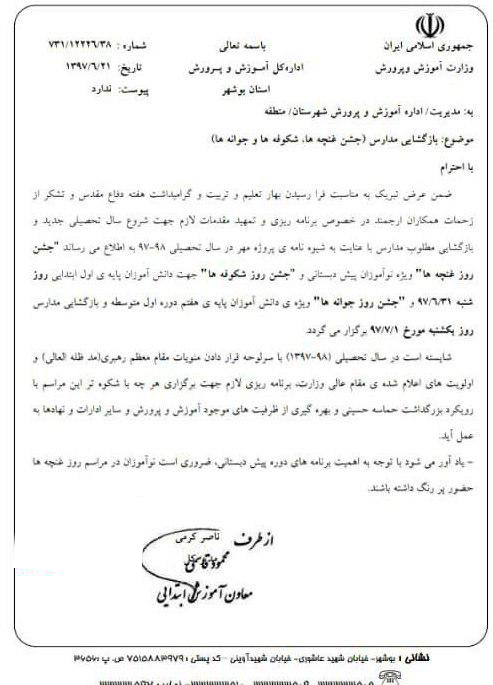 جمهوری اسلامی ایران
وزارت آموزش وپرورش
باسمه تعالی
اداره‌کل آموزش و پرورش
استان بوشهر
شماره : ۷۳۱/۱۲۲۲۶/۳۸
تاریخ: ۱۳۹۷/۶/۲۱
پیوست: ندارد
به: مدیریت/ اداره آموزش و پرورش شهرستان/ منطقه
موضوع: بازگشایی مدارس (جشن غنچه ها، شکوفه ها و جوانه ها)
با احترام
ضمن عرض تبریک به مناسبت فرا رسیدن بهار تعلیم و تربیت و گرامیداشت هفته دفاع مقدس و تشکر از
زحمات همکاران ارجمند در خصوص برنامه ریزی و تمهید مقدمات لازم جهت شروع سال تحصیلی جدید و
بازگشایی مطلوب مدارس با عنایت به شیوه نامه ی پروژه مهر در سال تحصیلی ۹۸-۹۷ به اطلاع می رساند "جشن
روز غنچه ها" ویژه نوآموزان پیش دبستانی و "جشن روز شکوفه ها" جهت دانش آموزان پایه ی اول ابتدایی روز
شنبه ۹۷/۶/۳۱ و "جشن روز جوانه ها" ویژه ی دانش آموزان پایه ی هفتم دوره اول متوسطه و بازگشایی مدارس
روز یکشنبه مورخ ۹۷/۷/۱ برگزار می گردد.
شایسته است در سال تحصیلی (۹۸-۱۳۹۷) با سرلوحه قرار دادن منویات مقام معظم رهبری(مد ظله العالی) و
اولویت های اعلام شده ی مقام عالی وزارت، برنامه ریزی لازم جهت برگزاری هر چه با شکوه تر این مراسم با
رویکرد بزرگداشت حماسه حسینی و بهره گیری از ظرفیت های موجود آموزش و پرورش و سایر ادارات و نهادها به
عمل آید.
- یاد آور می شود با توجه به اهمیت برنامه های دوره پیش دبستانی، ضروری است نوآموزان در مراسم روز غنچه ها
حضور پر رنگ داشته باشند.
ناصر کرمی
از طرف
محمود قاسمی
معاون آموزش ابتدایی
نشانی : بوشهر- خیابان شهید عاشوری- خیابان شهیدآوینی - کد پستی : ۷۵۱۵۸۸۳۹۷۹ ص. پ :۳۶۵۶